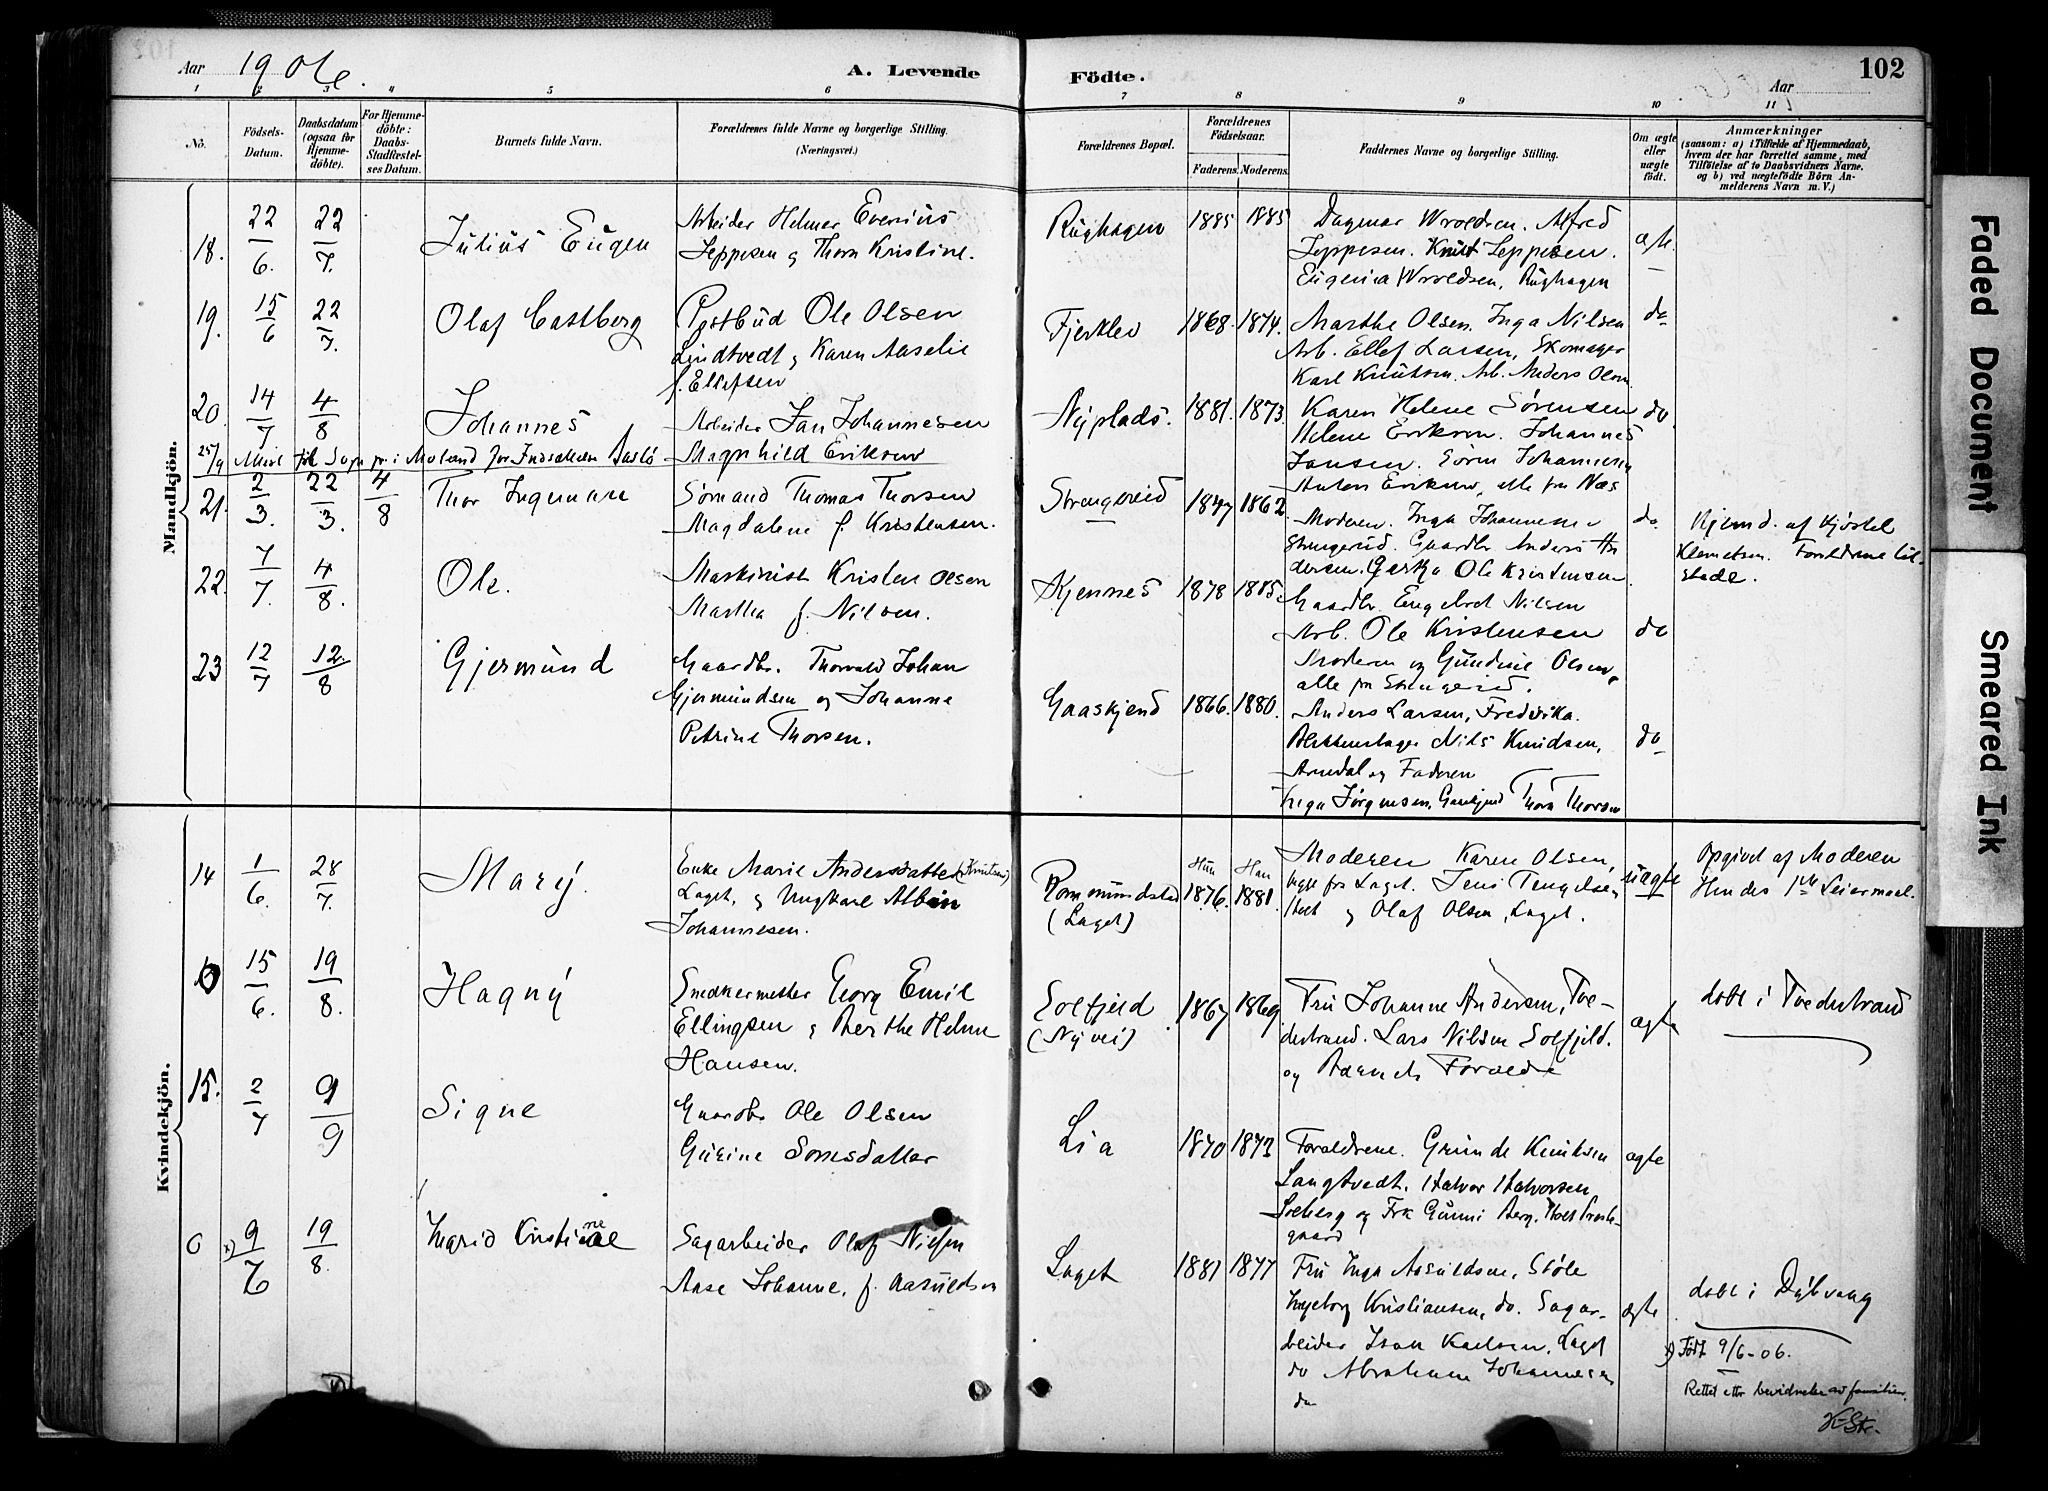 102
Aar 1906.
A. Levende
Födte.
Aar
1 2 3 4 5 6 7 8 9 10 11
No.
Födsels-Datum.
Daabsdatum (ogsaa for Hjemmedöbte).
For Hjemmedöbte: Daabs-Stadfæstelses Datum.
Barnets fulde Navn.
Forældrenes fulde Navne og borgerlige Stilling.
(Næringsvei.)
Forældrenes Bopæl.
Forældrenes Födselsaar.
Faderens. Moderens.
Faddernes Navne og borgerlige Stilling.
Om ægte eller uægte födt.
Anmærkninger
(saasom: a) i Tilfælde af Hjemmedaab, hvem der har forrettet samme, med Tilföielse af to Daabsvidners Navne, og b) ved uægtefödte Börn Anmelderens Navn m. V.)
Mandkjön.
18. 22/6. 22/7. Julius Eugen
Arbeider Helmer Evenius
Jeppesen g Thora Kristine.
Rughagen 1885 1885
Dagmar Wroldsen. Alfred
Jeppesen. Knut Jeppesen.
Eugenia Wroldsen, Rughagen
ægte
19. 15/6 22/7. Olaf Castberg
Postbud Ole Olsen
Lindtvedt g Karen Aaselie
f. Ellefsen
Fjerklev 1868. 1874.
Marthe Olsen. Inga Nilsen
Arb. Ellef Larsen, Skomager
Karl Knutsen. Arb. Anders Olsen
do
20. 14/7 4/8 Johannes
Arbeider Jan Johannesen
Magnhild Eriksen
Nyplads. 1881. 1873.
Karen Helene Sørensen
Helene Eriksen. Johannes
Jansen. Sören Johannesen
Anton Eriksen, alle fra Næs
do
21. 2/3. 22/3. 4/8 Thor Ingemar
Sømand Thomas Thorsen
Magdalene f. Kristensen.
Strengereid 1877 1862
Moderen. Inga Johannesen
Gaardbr Anders
Ole Kristensen
do
Hjemd. af Kjøstel
Klemetsen. Forældrene tilstede.
22. 7/7. 4/8. Ole.
Maskinist Kristen Olsen
Martha f. Nilsen.
Kjennes 1878 1885.
Gaardbr. Engebret Nilsen
Arb. Ole Kristensen
Moderen og Gundine Olsen,
alle fra Strengereid.
do
23 12/7 12./8 Gjermund
Gaardbr. Thorvald Johan
Gjermundsen og Johanne
Petrine Thorsen.
Gaaskjend 1866. 1880.
Anders Larsen, Fredrika.
Nils Knudsen,
Arendal og Faderen
Inga Jörgensen, Gaaskjend Thora Thorsen
do
Kvindekjön.
14 1/6. 28/7. Mary.
Enke Marie Andersdatter (Knutsen)
Laget, g Ungkarl Albin
Johannesen.
Rommundstad
(Laget)
Hun 1876. Han 1881.
Moderen Karen Olsen,
begge fra Laget. Jens Tengelsen
Holt g Olaf Olsen, Laget.
uægte
Opgivet af Moderen
Hendes 1ste Leiermaal.
0 15/6. 19/8. Hagny
Snedkermester Georg Emil
Ellingsen g Berthe Helene
Hansen.
Solfjeld
(Nyvei)
1867 1869
Fru Johanne Andersen, Tvedestrand. Lars Nilsen Solfjeld.
og Barnets Forældre
ægte
døbt i Tvedestrand
15. 2/7 9/9 Signe
Gaardbr Ole Olsen
Gurine
Lia 1870 1873
Forældrene. Grunde Knutsen
Langtvedt. Halvor Halvorsen
Solberg og Frk Gunni Berg. Holt Prestegaard
ægte
0 x) 9/6 19/8. Ingrid Kristine
Sagarbeider Olaf Nielsen
Aase Johanne, f. Aasuldsen
Laget 1881 1877
Fru Inga Aasuldsen, Støle
Ingeborg Kristiansen, do. Sagarbeider Isak Karlsen, Laget
do Abraham Johannesen
do
ægte
døbt i Dybvaag
x) Født 9/6-06.
Rettet etter bevidnelse av familien.
K-Str.
Faded Document
Smeared Ink